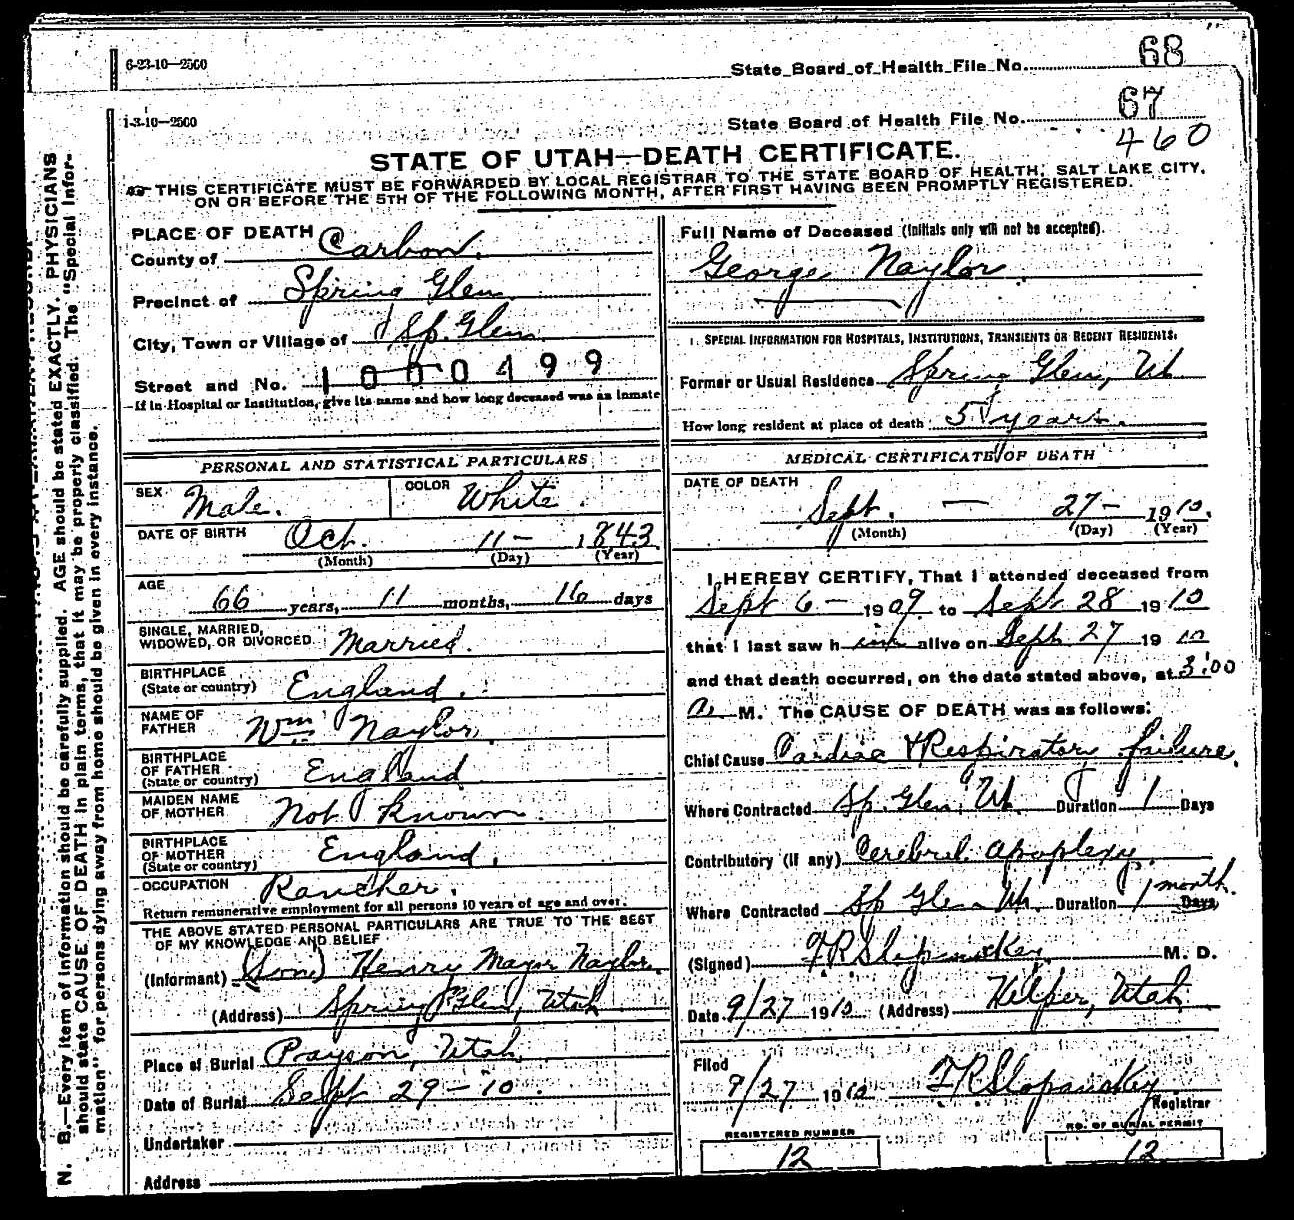 6-23-10—2500
State Board of Health File No. 68
1-3-10—2500
State Board of Health File No. 67
460
STATE OF UTAH—DEATH CERTIFICATE.
THIS CERTIFICATE MUST BE FORWARDED BY LOCAL REGISTRAR TO THE STATE BOARD OF HEALTH, SALT LAKE CITY,
ON OR BEFORE THE 5TH OF THE FOLLOWING MONTH, AFTER FIRST HAVING BEEN PROMPTLY REGISTERED.
PLACE OF DEATH
County of Carbon.
Precinct of Spring Glen
City, Town or Village of Sp. Glen
Street and No. 1000499
If in Hospital or Institution, give its name and how long deceased was an inmate
PERSONAL AND STATISTICAL PARTICULARS
SEX Male. COLOR White
DATE OF BIRTH Oct. 11- 1843
(Month) (Day) (Year)
AGE
66 years, 11 months, 16 days
SINGLE, MARRIED,
WIDOWED, OR DIVORCED. Married.
BIRTHPLACE
(State or country) England.
NAME OF
FATHER Wm Naylor.
BIRTHPLACE
OF FATHER
(State or country) England
MAIDEN NAME
OF MOTHER Not known
BIRTHPLACE
OF MOTHER
(State or country) England.
OCCUPATION Rancher.
Return remunerative employment for all persons 10 years of age and over.
THE ABOVE STATED PERSONAL PARTICULARS ARE TRUE TO THE BEST
OF MY KNOWLEDGE AND BELIEF
(Informant) (Son) Henry Mayor Naylor.
(Address) Spring Glen, Utah
Place of Burial Payson, Utah
Date of Burial Sept 29-10.
Undertaker
Address
Full Name of Deceased (Initials only will not be accepted).
George Naylor.
SPECIAL INFORMATION FOR HOSPITALS, INSTITUTIONS, TRANSIENTS OR RECENT RESIDENTS:
Former or Usual Residence Spring Glen, Ut
How long resident at place of death 5 years.
MEDICAL CERTIFICATE OF DEATH
DATE OF DEATH
Sept. — 27- 1910.
(Month) (Day) (Year)
I HEREBY CERTIFY, That I attended deceased from
Sept 6- 1909. to Sept. 28 1910
that I last saw h im alive on Sept. 27 1910
and that death occurred, on the date stated above, at 3:00
a. M. The CAUSE OF DEATH was as follows:
Chief Cause Cardiac & Respiratory failure.
Where Contracted Sp. Glen, Ut. Duration 1 Days
Contributory (if any) Cerebrul apoplexy.
Where Contracted Sp Glen Ut. Duration 1 month. Days
(Signed) F R Slopansky M. D.
Date 9/27 1910 (Address) Helper, Utah
Filed
9/27 1910 F R Slopansky
Registrar
REGISTERED NUMBER
12
NO. OF BURIAL PERMIT
12
N. B.—Every item of information should be carefully supplied. AGE should be stated EXACTLY. PHYSICIANS
should state CAUSE OF DEATH in plain terms, that it may be properly classified. The "Special Infor-
mation" for persons dying away from home should be given in every instance.